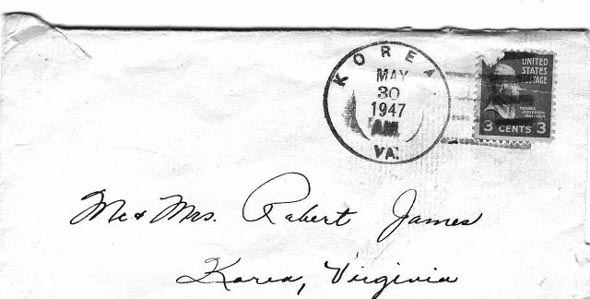 KOREA
MAY
30
1947
AM
VA.
UNITED
STATES
POSTAGE
THOMAS
JEFFERSON
3 CENTS 3
Mr & Mrs. Robert James
Korea, Virginia